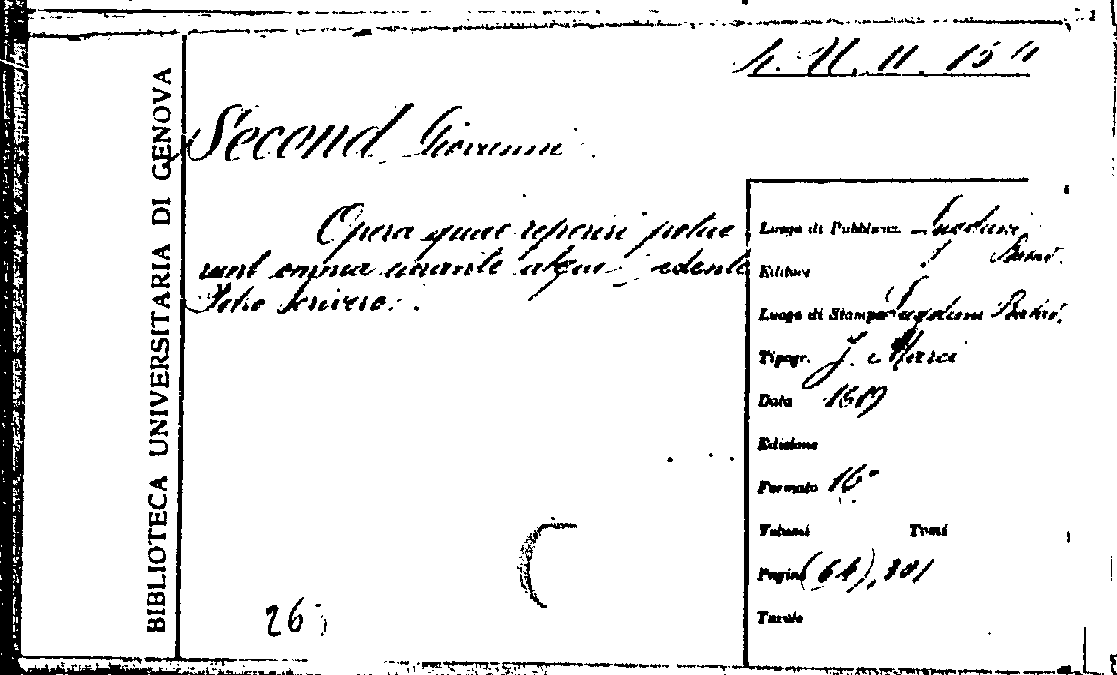 BIBLIOTECA UNIVERSITARIA DI GENOVA
Second Giovanni
Opera quae reperiri potue
runt omnia curante atque edente
Petro Scriverio.
Luogo di Pubblicaz. Lugduni
Batav.
Editore
Luogo di Stampa Lugduni Batav.
Tipogr. J. Marci
Data 1619
Edizione
Formato 16°
Volumi Tomi
Pagine (64), 301
Tavole
26